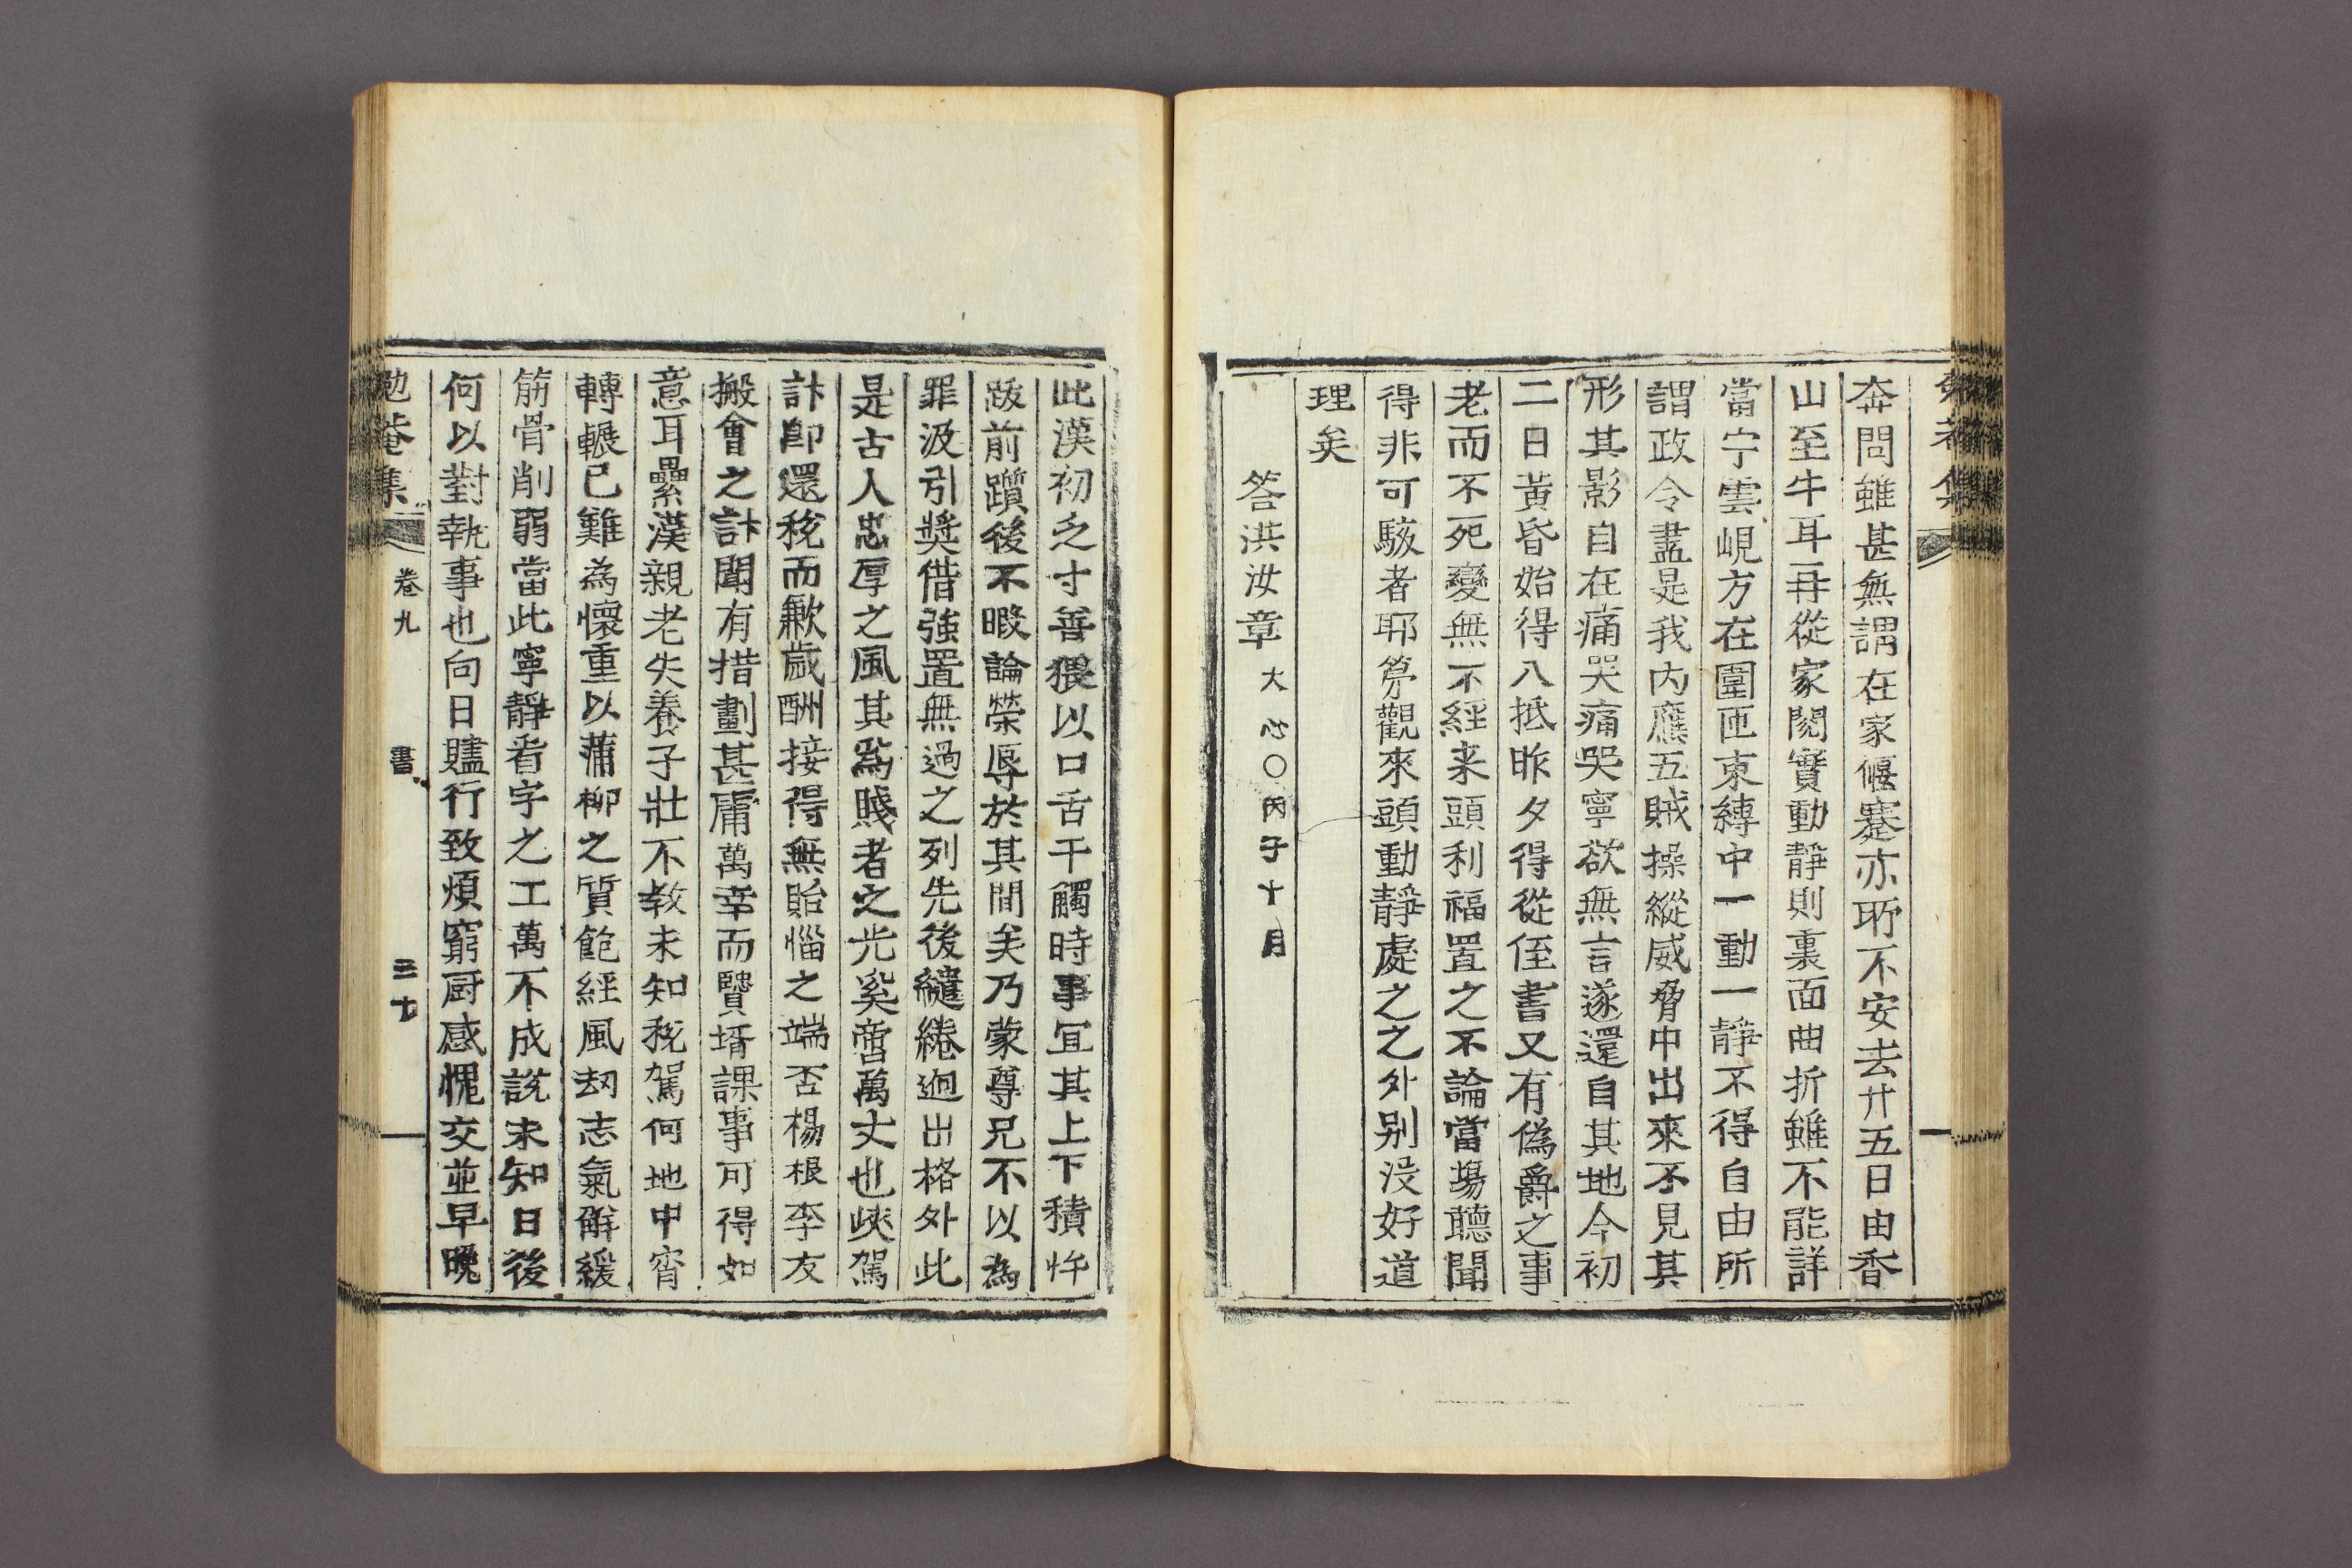 奔問雖甚無謂在家偃蹇亦所不安去廿五日由香
山至牛耳再從家閱實動靜則裏面曲折雖不能詳
當宁雲峴方在圍匝束縛中一動一靜不得自由所
謂政令盡是我內應五賊操縱威脅中出來不見其
形其影自在痛哭痛哭寧欲無言遂還自其地今初
二日黃昏始得入抵昨夕得從侄書又有僞爵之事
老而不死變無不經来頭利福置之不論當塲聽聞
得非可駭者耶第觀來頭動靜處之之外別没好道
理矣
答洪汝章 大心○丙子十月
此漢初乏寸善猥以口舌干觸時事宜其上下積忤
跋前躓後不暇論榮辱於其間矣乃蒙尊兄不以為
罪汲引奬借強置無過之列先後繾綣逈出格外此
是古人忠厚之風其爲賤者之光奚啻萬丈也峽駕
計卽還稅而歉歲酬接得無貽惱之端否楊根李友
搬會之計聞有措劃甚庸萬幸而贒壻課事可得如
意耳纍漢親老失養子壯不教未知稅駕何地中宵
轉輾已難為懷重以蒲柳之質飽經風刼志氣觧緩
筋骨削弱當此寧靜看字之工萬不成說未知日後
何以對執事也向日贐行致煩窮厨感愧交並早晚
勉菴集 卷九 書 三十